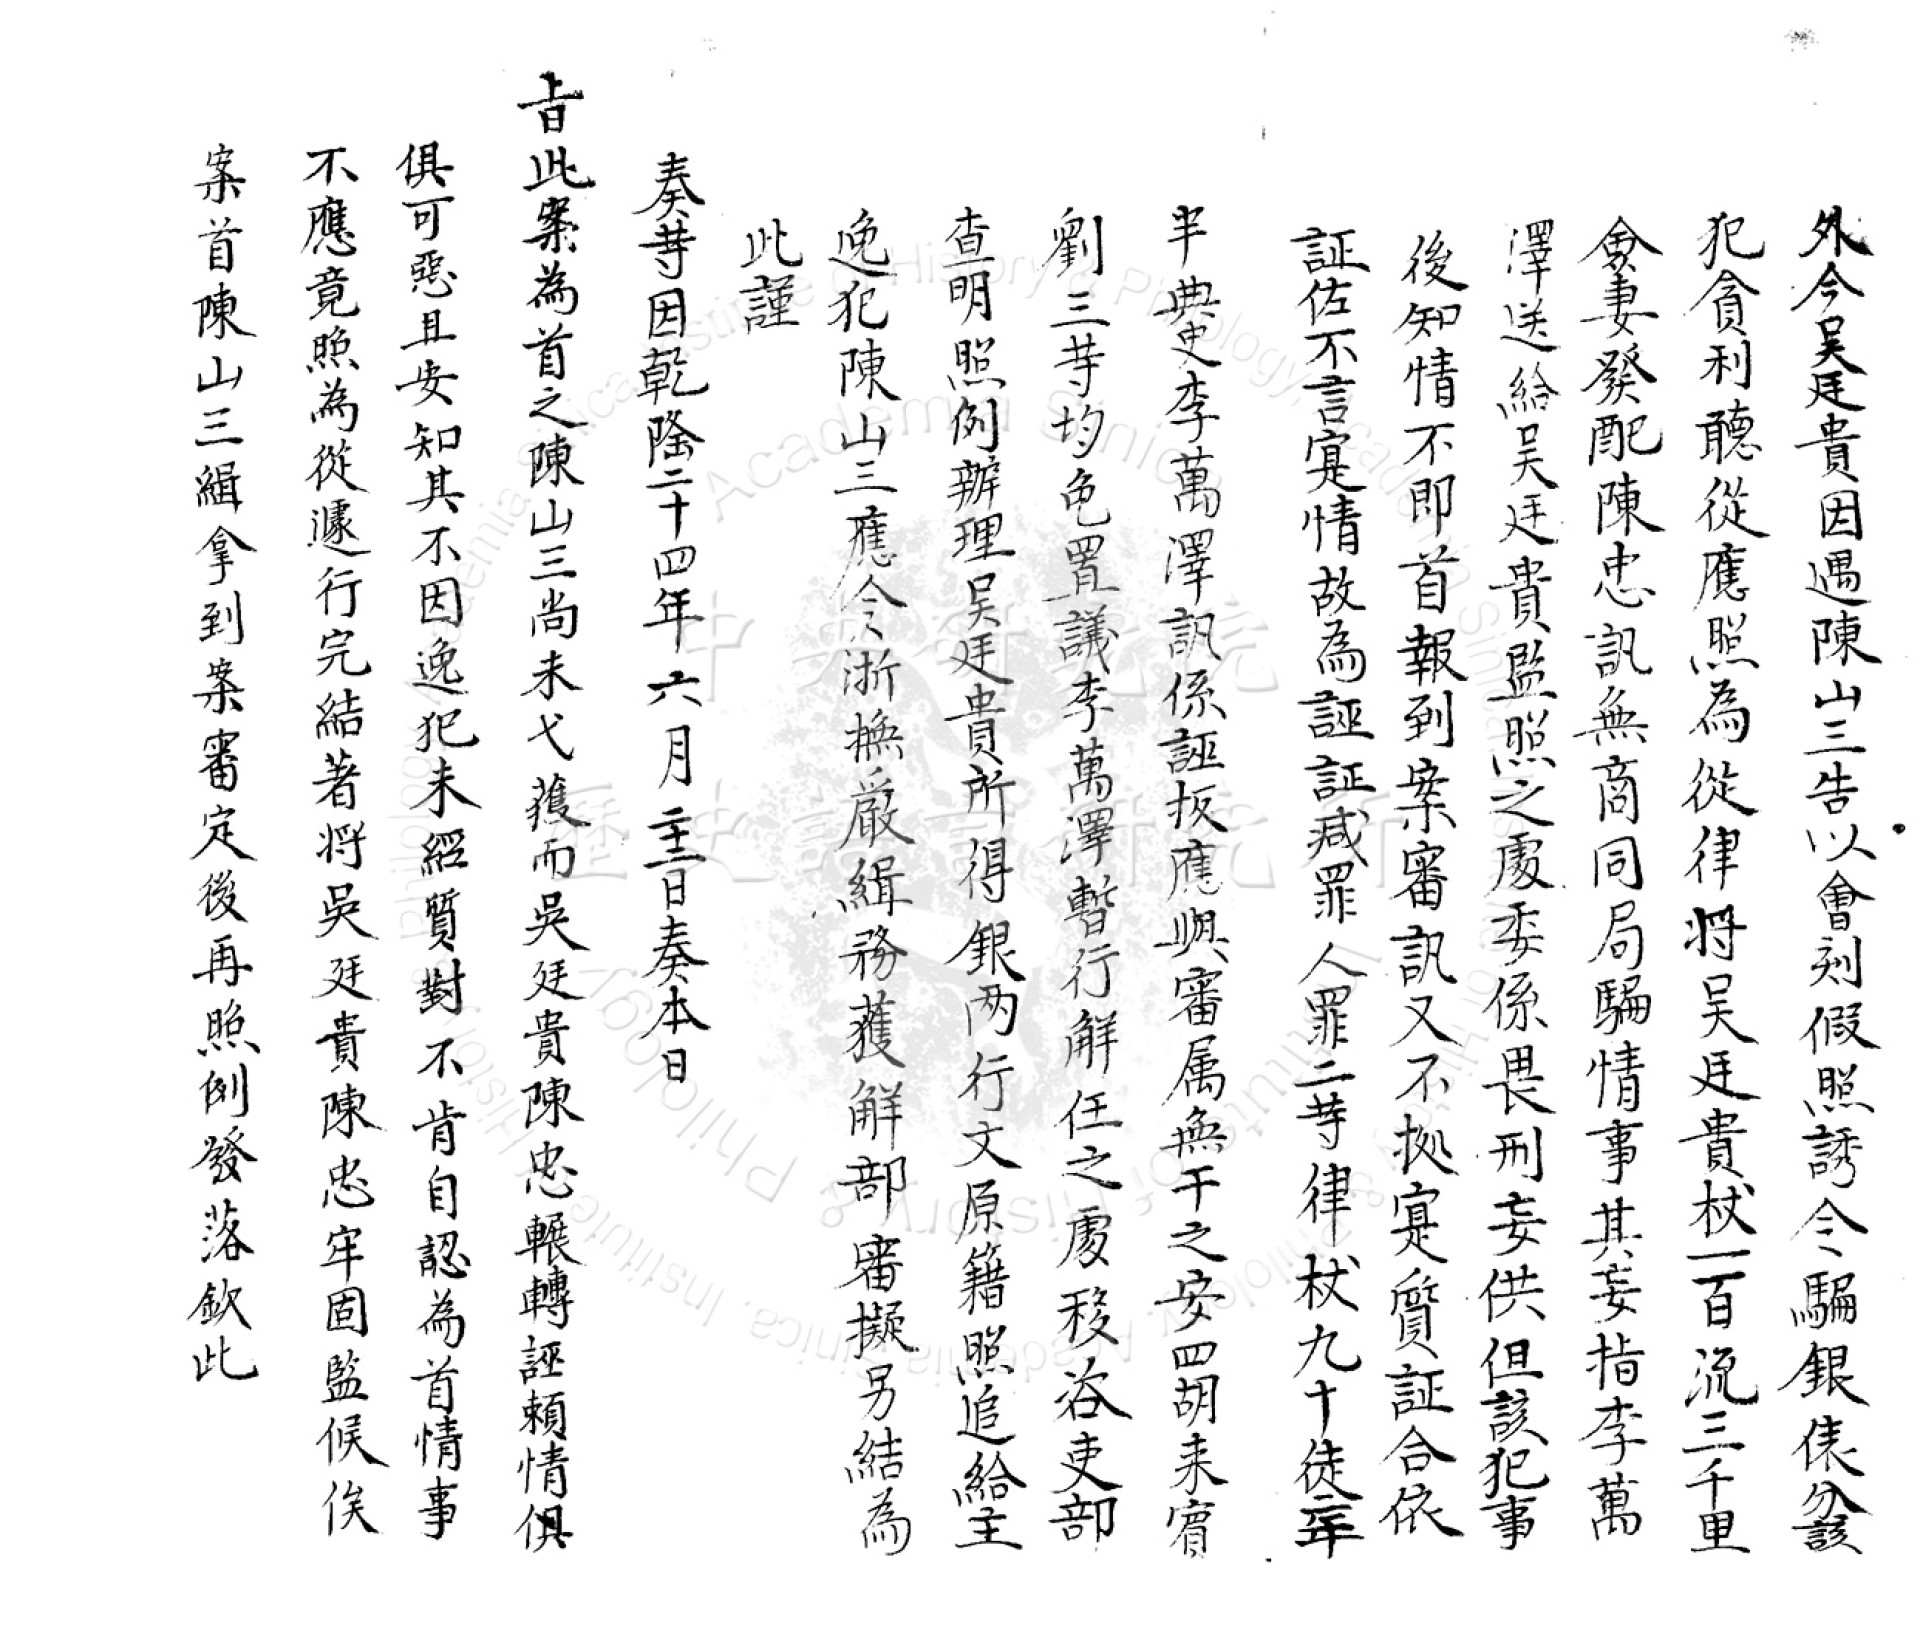 外今吴廷貴因遇陳山三告以會刻假照誘令騙銀俵分該
犯貪利聽從應照為從律將吴廷貴杖一百流三千里
僉妻發配陳忠訊無商同局騙情事其妄指李萬
澤送給吴廷貴監照之處委係畏刑妄供但該犯事
後知情不即首報到案審訊又不拠寔質証合依
証佐不言寔情故為誣証減罪人罪二等律杖九十徒二年
半典史李萬澤訊係誣扳應與審属無干之安四胡来賓
劉三等均免置議李萬澤暫行解任之處移咨吏部
查明照例辦理吴廷貴所得銀两行文原籍照追給主
逸犯陳山三應令浙撫嚴緝務獲解部審擬另結為
此謹
奏等因乾隆二十四年六月二十二日奏本日
㫖此案為首之陳山三尚未弋獲而吳廷貴陳忠輾轉誣賴情俱
俱可惡且安知其不因逸犯未經質對不肯自認為首情事
不應竟照為從遽行完結著将吳廷貴陳忠牢固監候俟
案首陳山三緝拿到案審定後再照例發落欽此
中央研究院
歷史語言研究所
Institute of History & Philology, Academia Sinica